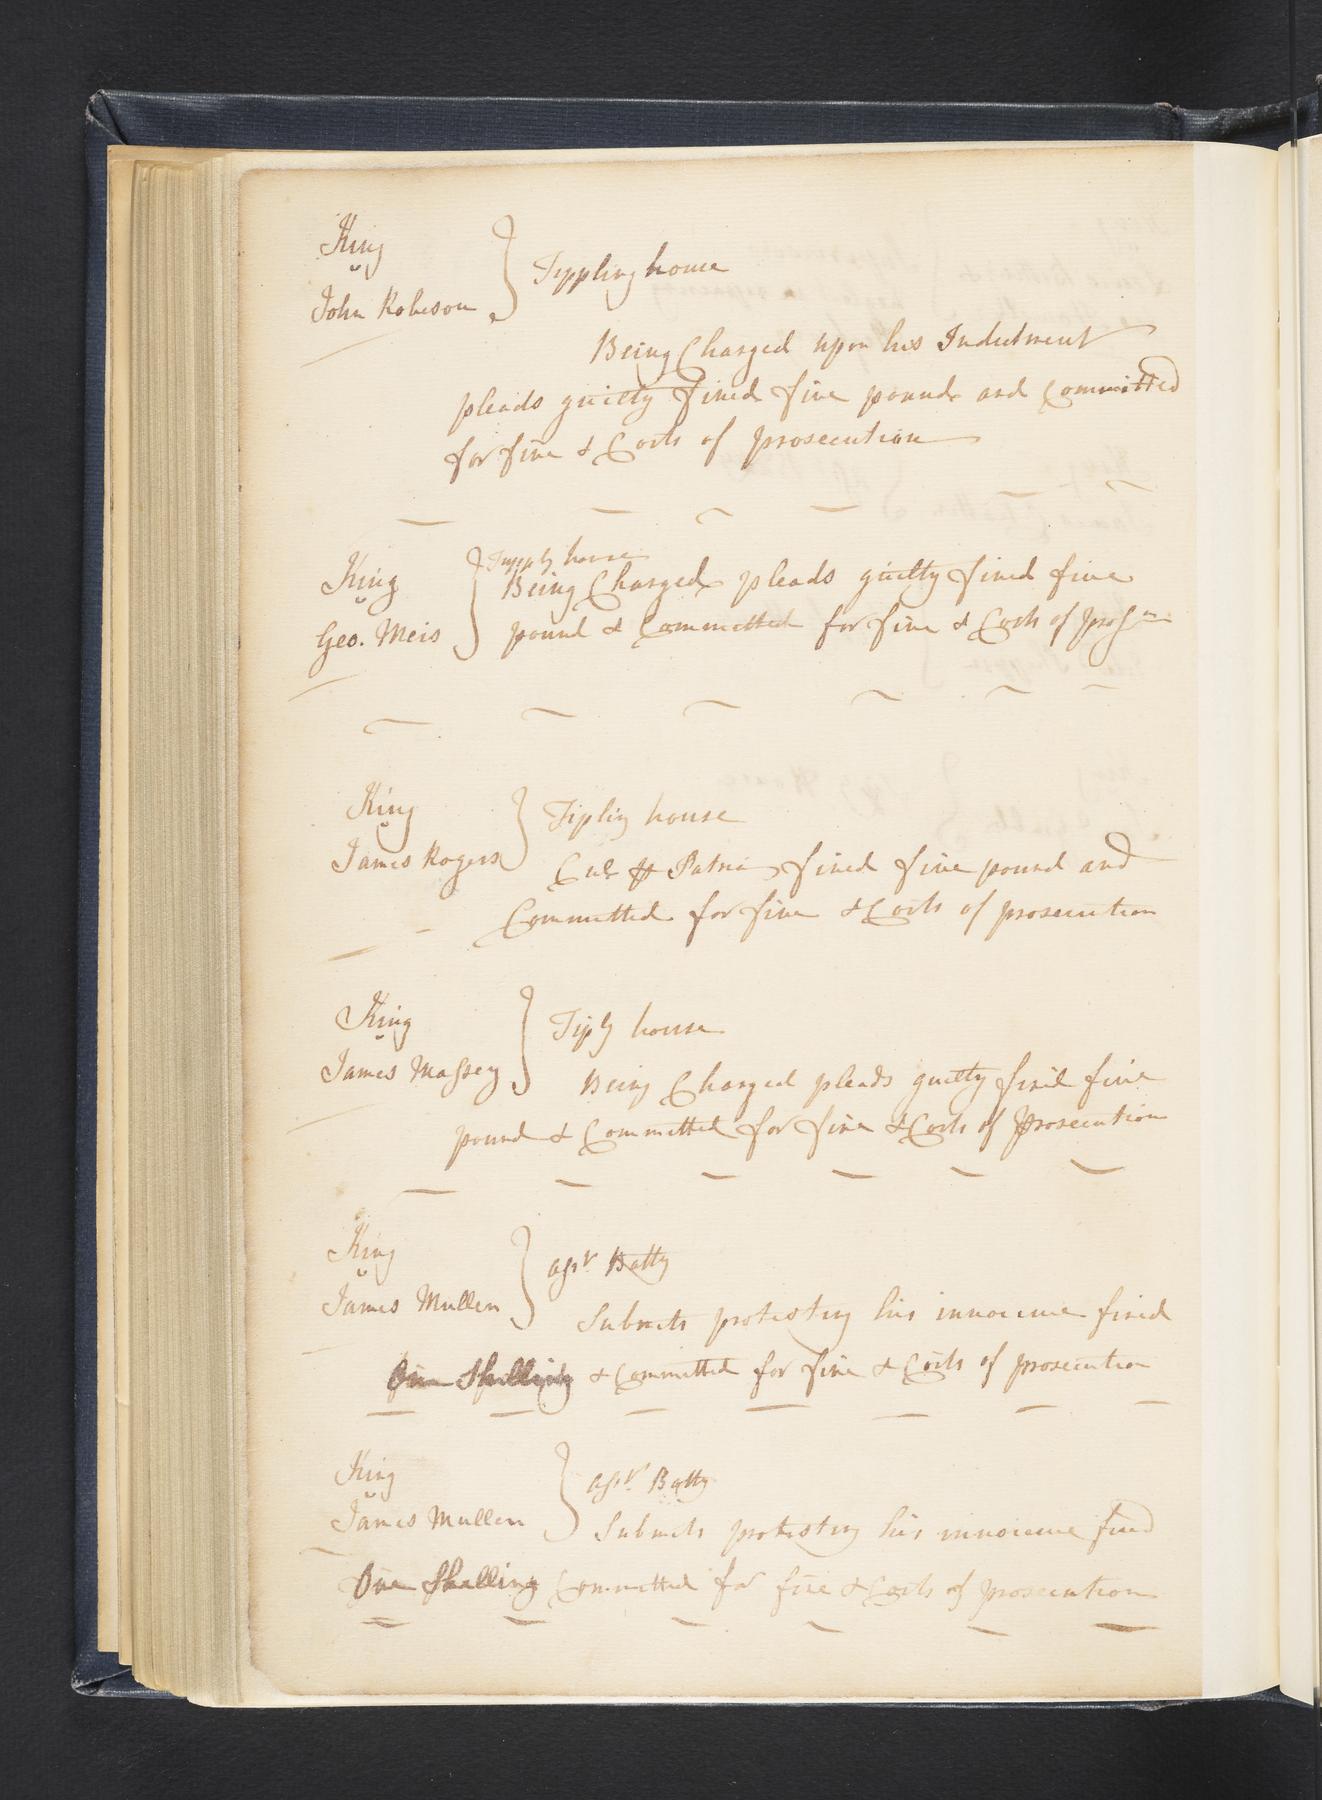 King
v
John Robeson } Tippling house
Being Charged upon his Indictment
pleads guilty fined five pounds and Committed
for fine & Costs of prosecution
King } Tipply house
v Being Charged pleads guilty fined five
Geo. Meis pound & Committed for fine & Costs of Prosn
King
v } Tiplin house
James Rogers
Cul Patria fined five pound and
Committed for fine & Costs of prosecution
King
v } Tiply house
James Massey
Being Charged pleads guilty find five
pound & Committed for fine & Costs of Prosecution
King
v } Batty
James Mullen
Submits protesting his innocence fined
One Shilling & Committed for fine & Costs of prosecution
King
v } Batty
James Mullen
Submits protesting his innocence fined
One Shilling Committed for fine & Costs of prosecution